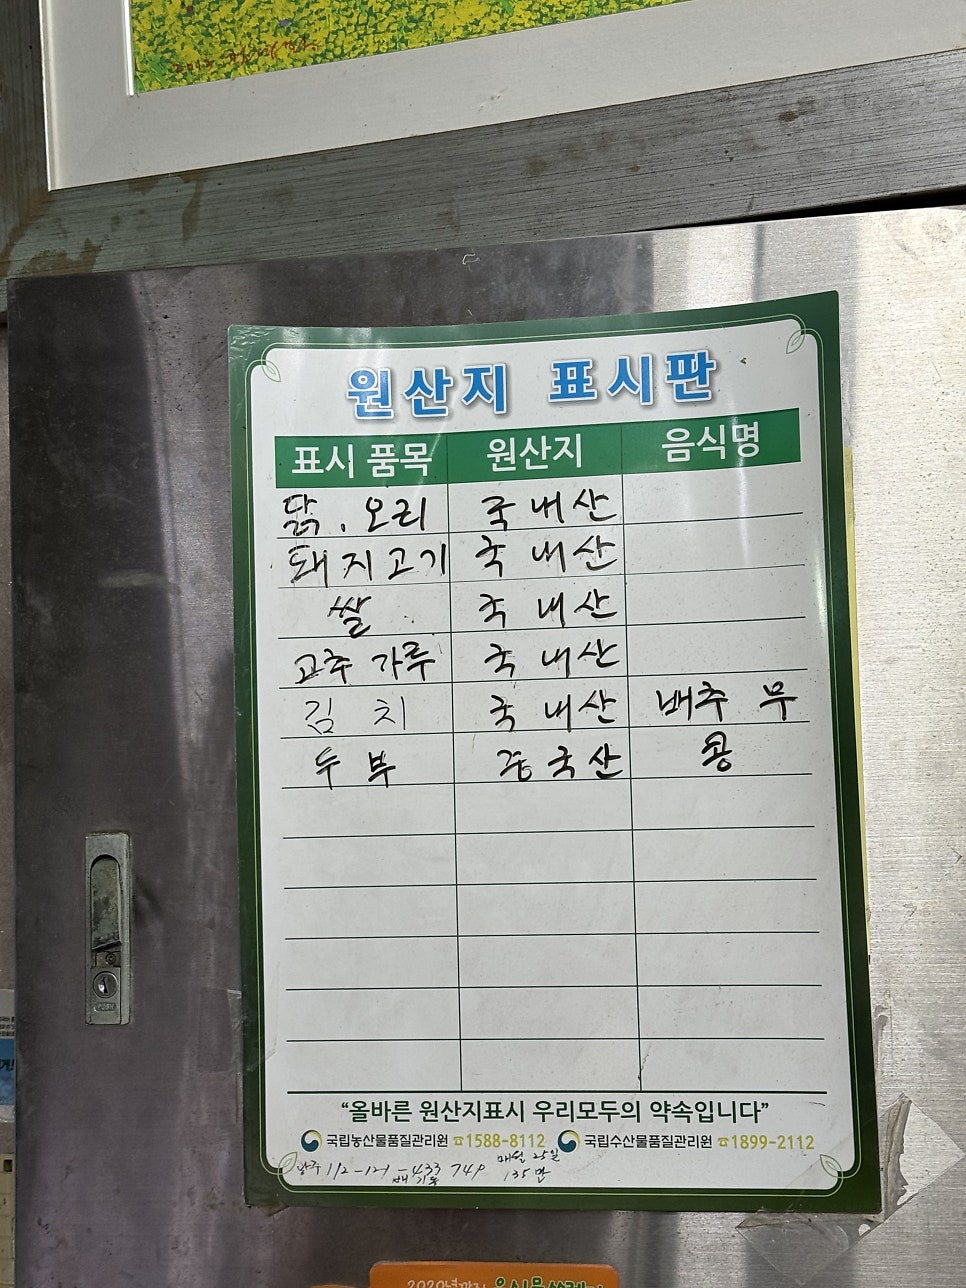 원산지 표시판
표시 품목 원산지 음식명
닭, 오리 국내산
돼지고기 국내산
쌀 국내산
고추 가루 국내산
김치 국내산 배추 무
두부 중국산 콩
“올바른 원산지표시 우리모두의 약속입니다”
국립농산물품질관리원 ☎1588-8112 국립수산물품질관리원 ☎1899-2112
매월 25일
광주 112-121-433 749 135만
2020년까지 음식물쓰레기